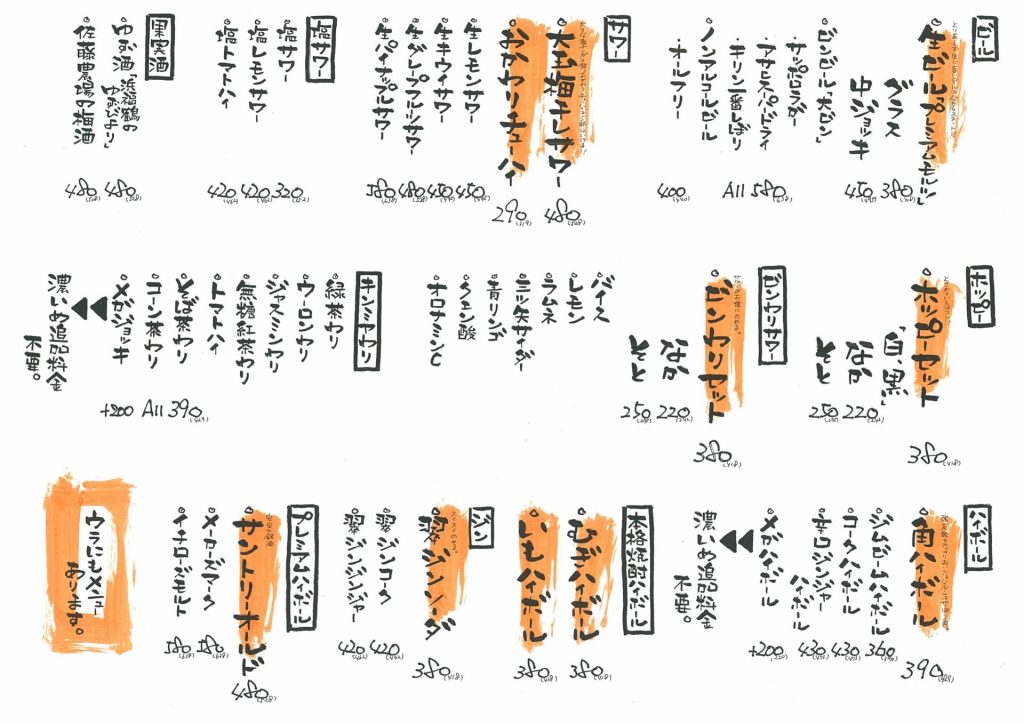 ビール
生ビール「プレミアムモルツ」
380(418)
グラス
中ジョッキ
450(495)
ビンビール「大ビン」
・サッポロラガー
・アサヒスーパードライ
580(638)
・キリン一番しぼり
All
ノンアルコールビール
・オールフリー
400(440)
サワー
大玉梅干しサワー
480(528)
おかわりチューハイ
290(319)
生レモンサワー
450(495)
生キウイサワー
450(495)
生グレープフルーツサワー
480(528)
生パイナップルサワー
580(638)
塩サワー
塩サワー
320(352)
塩レモンサワー
420(462)
塩トマトハイ
420(462)
果実酒
ゆず酒「浜福鶴の
ゆずびより」
480(528)
佐藤農場の梅酒
480(528)
ホッピー
ホッピーセット
「白、黒」
380(418)
なか
220(242)
そと
250(275)
ビンワリサワー
サワーをお得にのめる。
ビンワリセット
380(418)
なか
220(242)
そと
250(275)
バイス
レモン
ラムネ
三ツ矢サイダー
青リンゴ
クエン酸
オロナミンC
キンミヤワリ
緑茶ワリ
ウーロンワリ
ジャスミンワリ
無糖紅茶ワリ
トマトハイ
そば茶ワリ
390(429)
コーン茶ワリ
All
メガジョッキ
+200
濃いめ追加料金
不要。
ハイボール
角ハイボール
390(429)
ジムビームハイボール
360(396)
コークハイボール
430(473)
辛口ジンジャー
ハイボール
430(473)
メガハイボール
+200(220)
濃いめ追加料金
不要。
本格焼酎ハイボール
むぎハイボール
380(418)
いもハイボール
380(418)
ジン
スイスイのめる。
翠ジンソーダ
380(418)
翠ジンコーク
420(462)
翠ジンジンジャー
420(462)
プレミアムハイボール
サントリーオールド
480(528)
メーカーズマーク
580(638)
イチローズモルト
580(638)
ウラにもメニュー
あります。